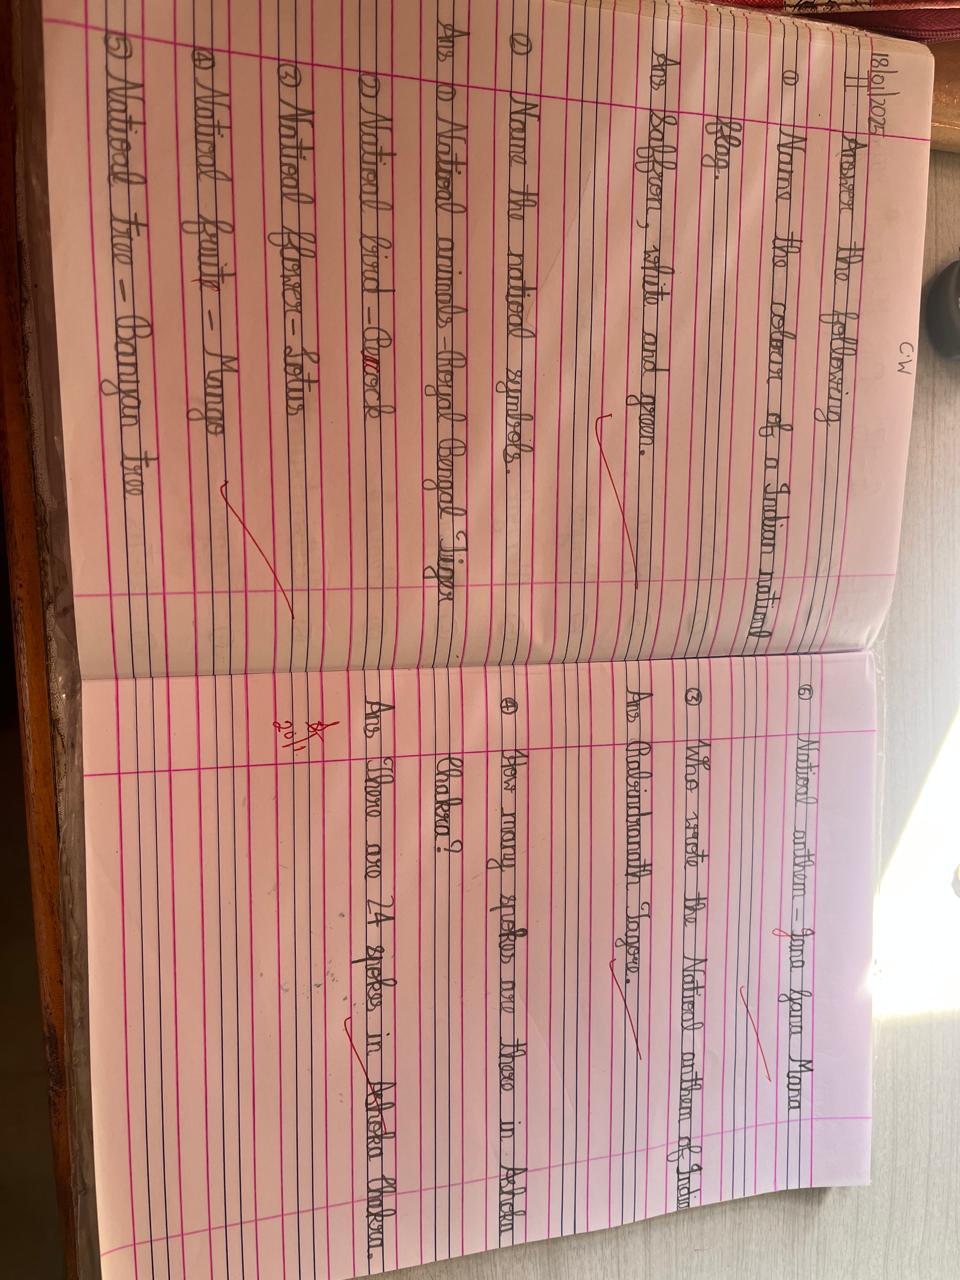 18/01/2025
C.W
II Answer the following
① Name the colour of a Indian national
flag.
Ans Saffron, white and green.
② Name the national symbols.
Ans ① National animals - Royal Bengal Tiger
② National bird - Peacock
③ National flower - Lotus
④ National fruit - Mango
⑤ National tree - Banyan tree
⑥ National anthem - Jana Gana Mana
③ Who wrote the National anthem of India
Ans Rabindranath Tagore.
④ How many spokes are there in Ashoka
Chakra?
Ans There are 24 spokes in Ashoka Chakra.
20/1